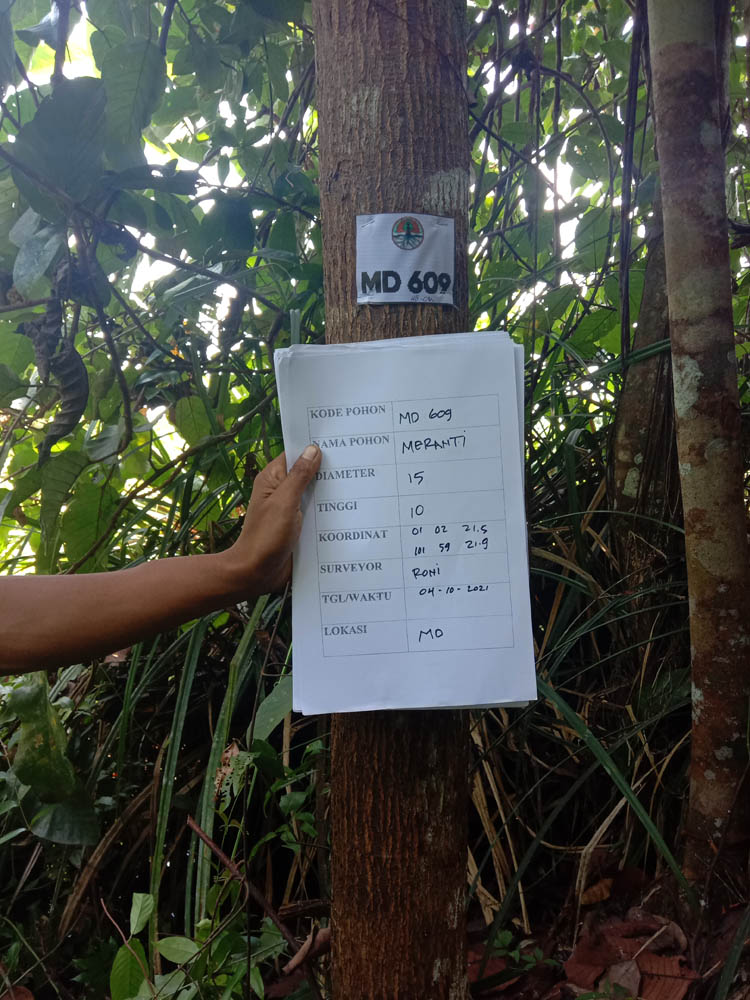 MD 609
KODE POHON MD 609
NAMA POHON MERANTI
DIAMETER 15
TINGGI 10
KOORDINAT 01 02 21.5
101 59 21.9
SURVEYOR RONI
TGL/WAKTU 04-10-2021
LOKASI MD